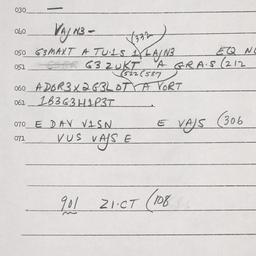 030 —
040 VAJN3 -
(332
050 G3MAXT A TU.1S 1 LAJN3 EQ N
051 G3 ZUKT A GRA.S (212
(522 (587
060 ADOR3X2G3LDT A VORT
061 1B3G3H1P3T
070 E DAV V1SN E VAJS (306
071 VUS VAJS E
901 Z1.CT (108